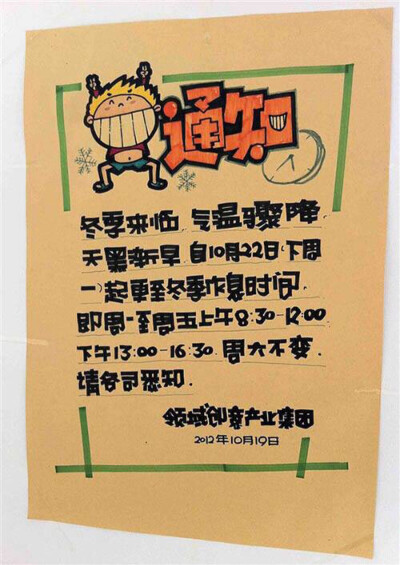 通知
冬季来临,气温骤降,
天黑渐早.自10月22日(下周
一)起更至冬季作息时间,
即周一至周五上午8:30-12:00,
下午13:00-16:30.周六不变.
请各司悉知.
领域创意产业集团
2012年10月19日